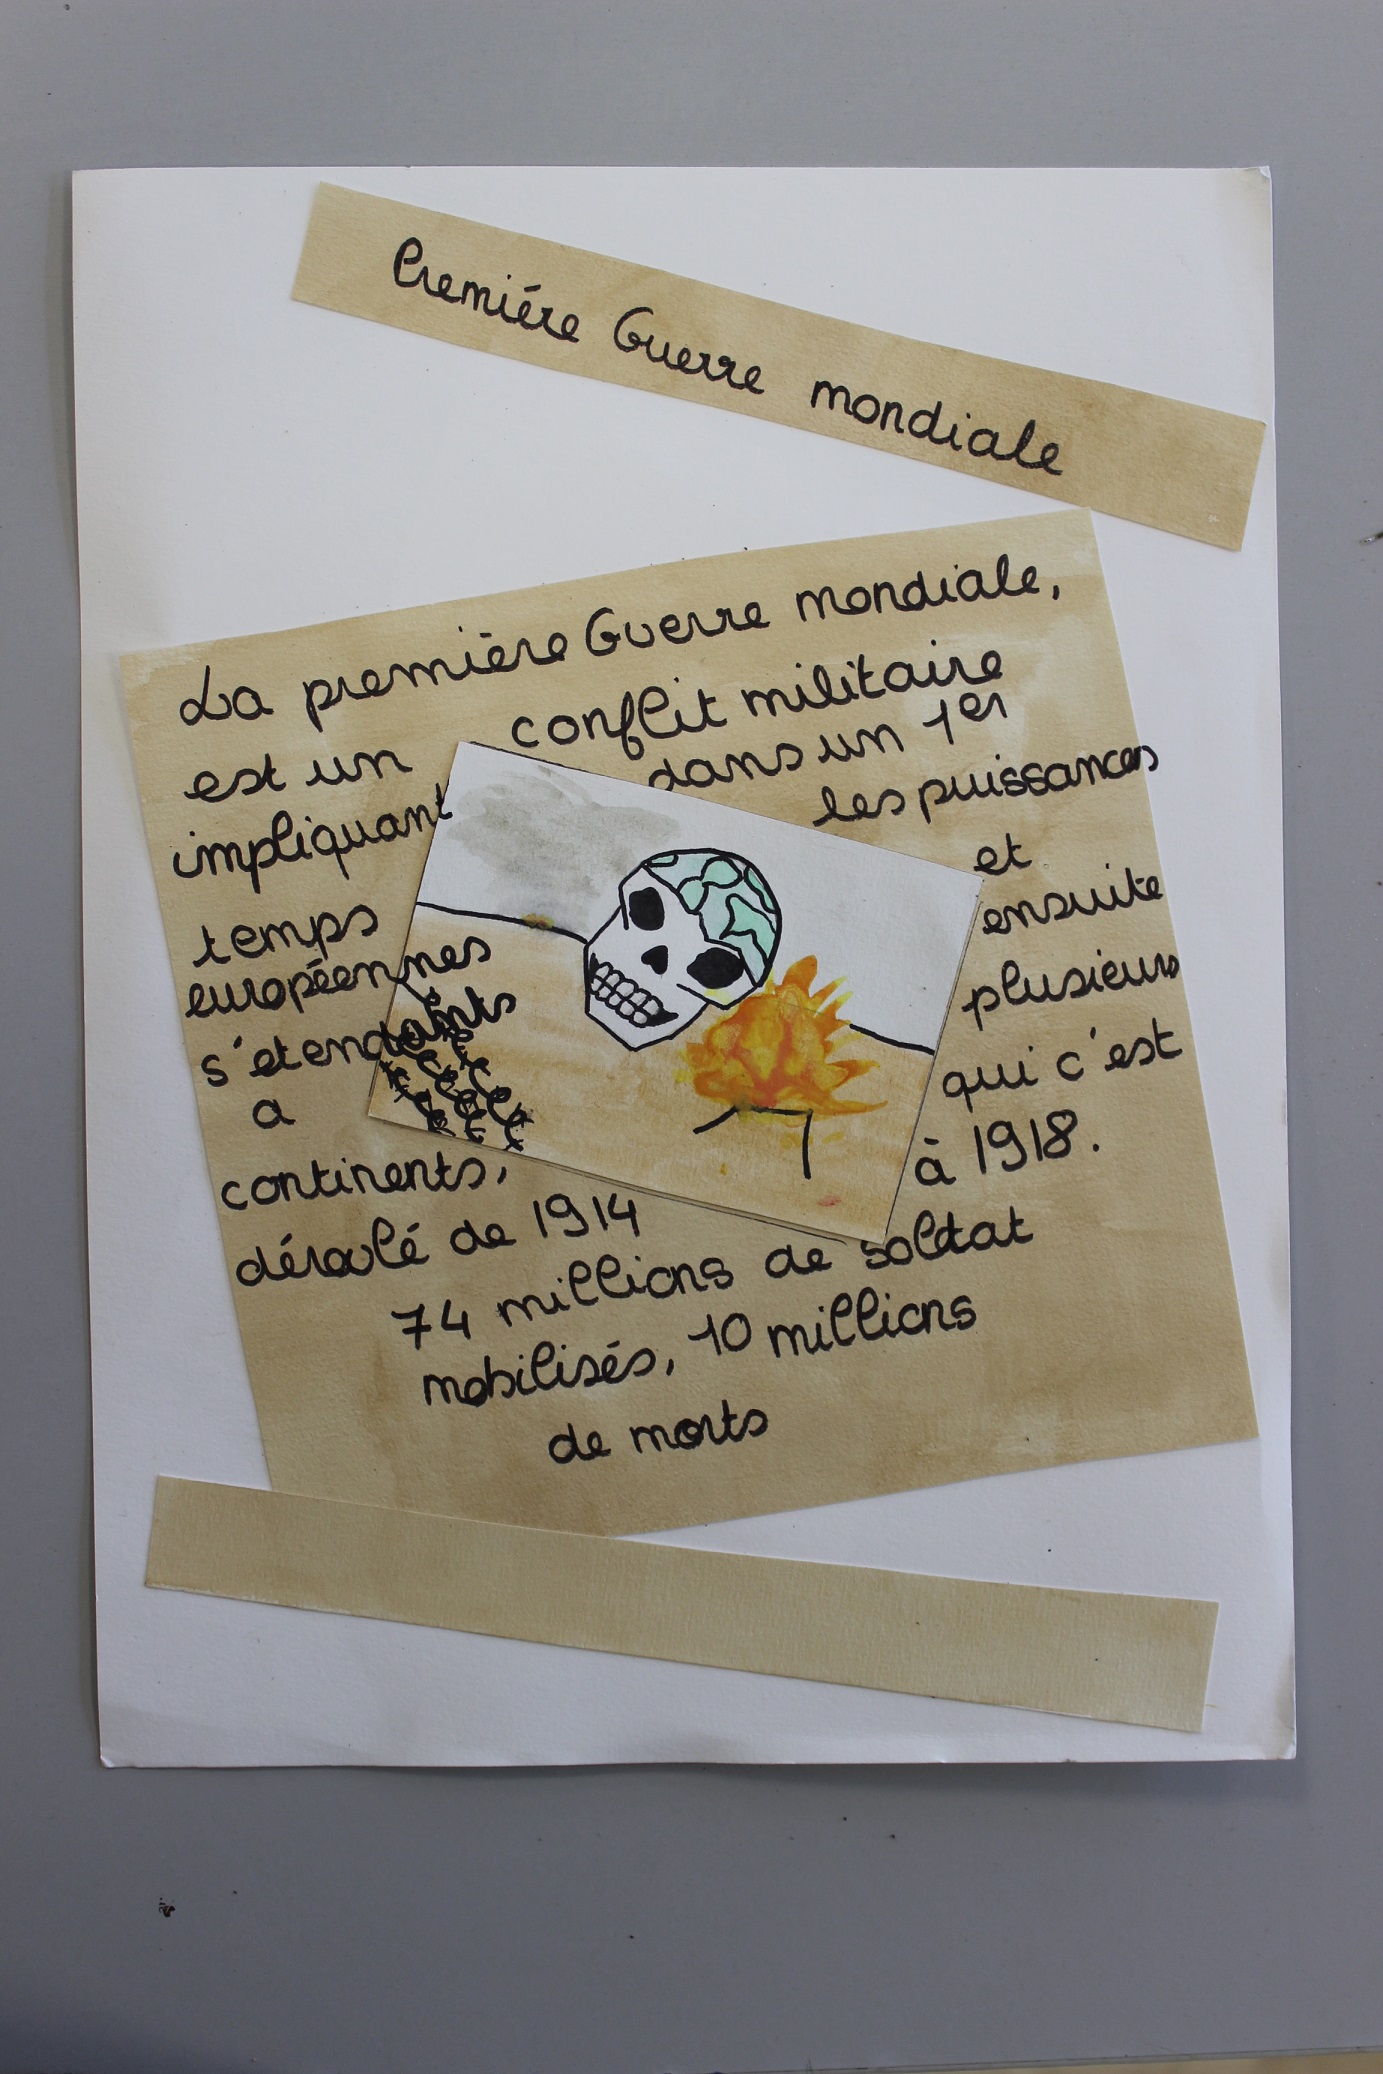 Premiére Guerre mondiale
La première Guerre mondiale,
est un conflit militaire
impliquant dans un 1er
temps les puissances
européennes et
s'etendants ensuite
a plusieurs
continents, qui c'est
déroulé de 1914 à 1918.
74 millions de soldat
mobilisés, 10 millions
de morts